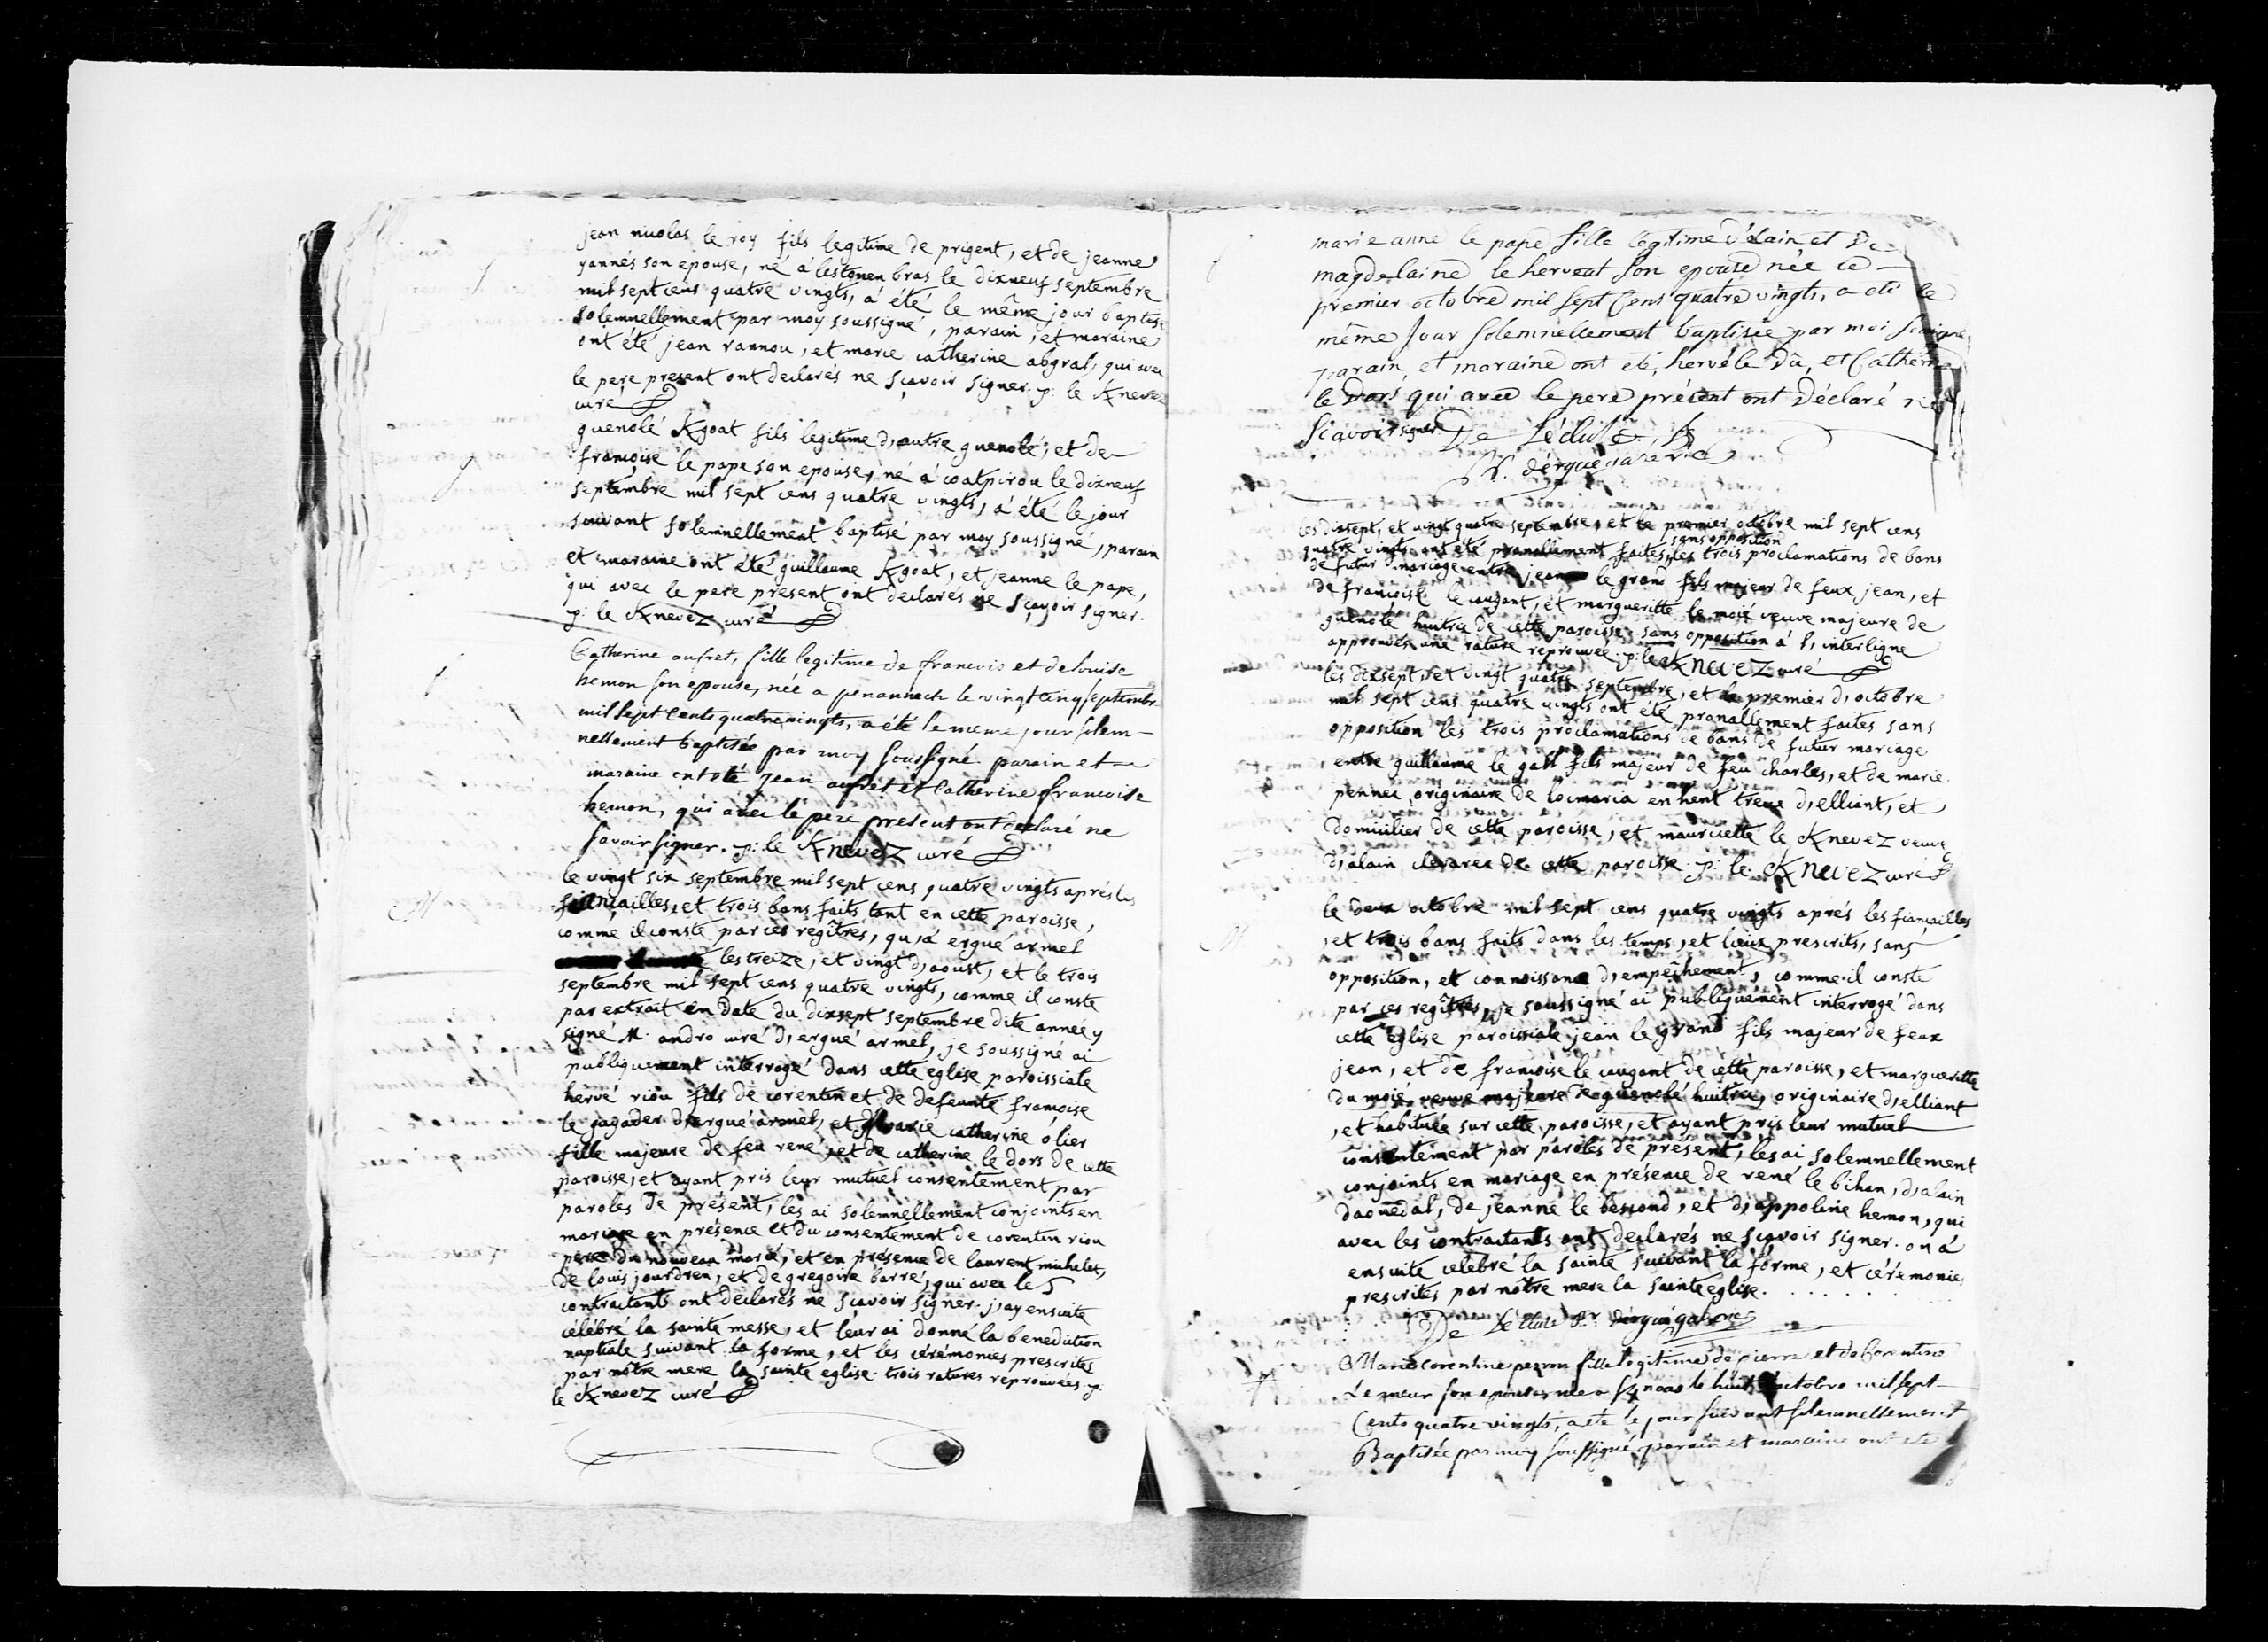 jean nicolas le roy fils legitime de prigent, et de jeanne
yannés son epouse, né à lestonen bras le dixneuf septembre
mil sept cens quatre vingts, à été le même jour baptisé
solemnellement par moy soussigné, parain, et maraine
ont été jean rannou, et marie catherine abgral, qui avec
le pere present ont declarés ne sçavoir signer. p: le Knevez
curé
guenolé Kgoat fils legitime d'autre guenolé, et de
françoise le pape son epouse, né à coatpirou le dixneuf
septembre mil sept cens quatre vingts, à été le jour
suivant solemnellement baptisé par moy soussigné, parain
et maraine ont été guillaume Kgoat, et jeanne le pape,
qui avec le pere present ont declarés ne sçavoir signer.
p: le Knevez curé
Catherine aufret, fille legitime de francois et de louise
hemon son epouse, née a penannech le vingt cinq septembre
mil sept cents quatre vingts, a été le meme jour solem-
nellement baptisée par moy soussigné. parain et
maraine ont été jean aufret et Catherine francoise
hemon, qui avec le pere present ont declaré ne
savoir signer. p: le Knevez curé
M
le vingt six septembre mil sept cens quatre vingts aprés les
fiançailles, et trois bans faits tant en cette paroisse,
comme il conste par ces regîtres, qu'à ergué armel
les treize, et vingt d'aoust, et le trois
septembre mil sept cens quatre vingts, comme il conste
par extrait en date du dixsept septembre dite année y
signé M. andro curé d'ergué armel, je soussigné ai
publiquement interrogé dans cette eglise paroissiale
hervé riou fils de corentin et de defeunte françoise
le gagader d'ergué armel, et Marie catherine olier
fille majeure de feu rené, et de catherine le dors de cette
paroisse, et ayant pris leur mutuel consentement par
paroles de présent, les ai solemnellement conjoints en
mariage en présence et du consentement de corentin riou
pere du nouveau marié, et en présence de laurent michelet,
de louis jourdren, et de gregoire barré, qui avec les
contractants ont declarés ne sçavoir signer. j'ay ensuite
célébré la sainte messe, et leur ai donné la benediction
nuptiale suivant la forme, et les cérémonies prescrites
par nôtre mere la sainte eglise. trois ratures reprouvées. p:
le Knevez curé
marie anne le pape fille légitime d'alain et De
magdelaine le herveat son epouse née ce
premier octobre mil sept Cens quatre vingts, a été le
même jour solemnellement baptisée par moi soussigné
parain et maraine ont été, hervé le Dû, et Catherine
le Dors qui avec le pere présent ont Déclaré ne
sçavoir signer. De Lécluse
d'erguégaberic
les dixsept, et vingt quatre septembre, et le premier octobre mil sept cens
sans opposition
quatre vingts ont été pronallement faites, les trois proclamations de bans
de futur mariage entre jean le grand fils majeur de feux jean, et
de françoise le caugant, et margueritte le moié veuve majeure de
guenolé huitric de cette paroisse. sans opposition à l'interligne
approuvés une rature reprouvée. p: le Knevez curé
les dixsept, et vingt quatre septembre, et le premier d'octobre
mil sept cens quatre vingts ont été pronallement faites sans
opposition les trois proclamations de bans de futur mariage
entre guillaume le gall fils majeur de feu charles, et de marie
pennec originaire de locmaria en hent treve d'elliant, et
domicilier de cette paroisse, et mauricette le Knevez veuve
d'alain de cette paroisse. p: le Knevez curé
M
le deux octobre mil sept cens quatre vingts aprés les fiançailles
, et trois bans faits dans les temps, et lieux prescrits, sans
opposition, et connoissance d'empêchement, comme il conste
par ces regîtres, je soussigné ai publiquement interrogé dans
cette eglise paroissiale jean le grand fils majeur de feux
jean, et de françoise le caugant de cette paroisse, et margueritte
du moié veuve majeure de guenolé huitric, originaire d'elliant
, et habituée sur cette paroisse, et ayant pris leur mutuel
consentement par paroles de présent, les ai solemnellement
conjoints en mariage en présence de rené le bihan, d'alain
daouedal, de jeanne le bescond, et d'appoline hemon, qui
avec les contractants ont declarés ne sçavoir signer. on à
ensuite célébré la sainte suivant la forme, et cérémonies
prescrites par nôtre mere la sainte eglise.
De Lécluse Rr d'erguégaberic
Marie Corentine pezron fille legitime de pierre et de Corentine
Le meur son epouse, née a le huit octobre mil sept
Cents quatre vingts, a été le jour suivant solemnellement
Baptisée par moy soussigné, parain et maraine ont été